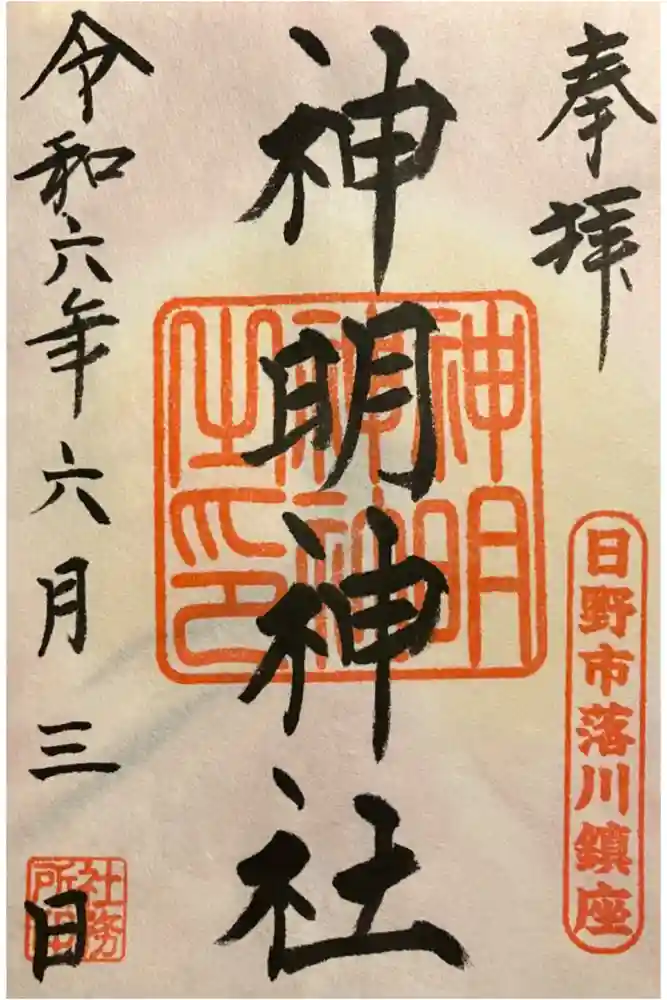 奉拝
日野市落川鎮座
神明神社
神明
神社
之印
令和六年六月三日
社務
所印